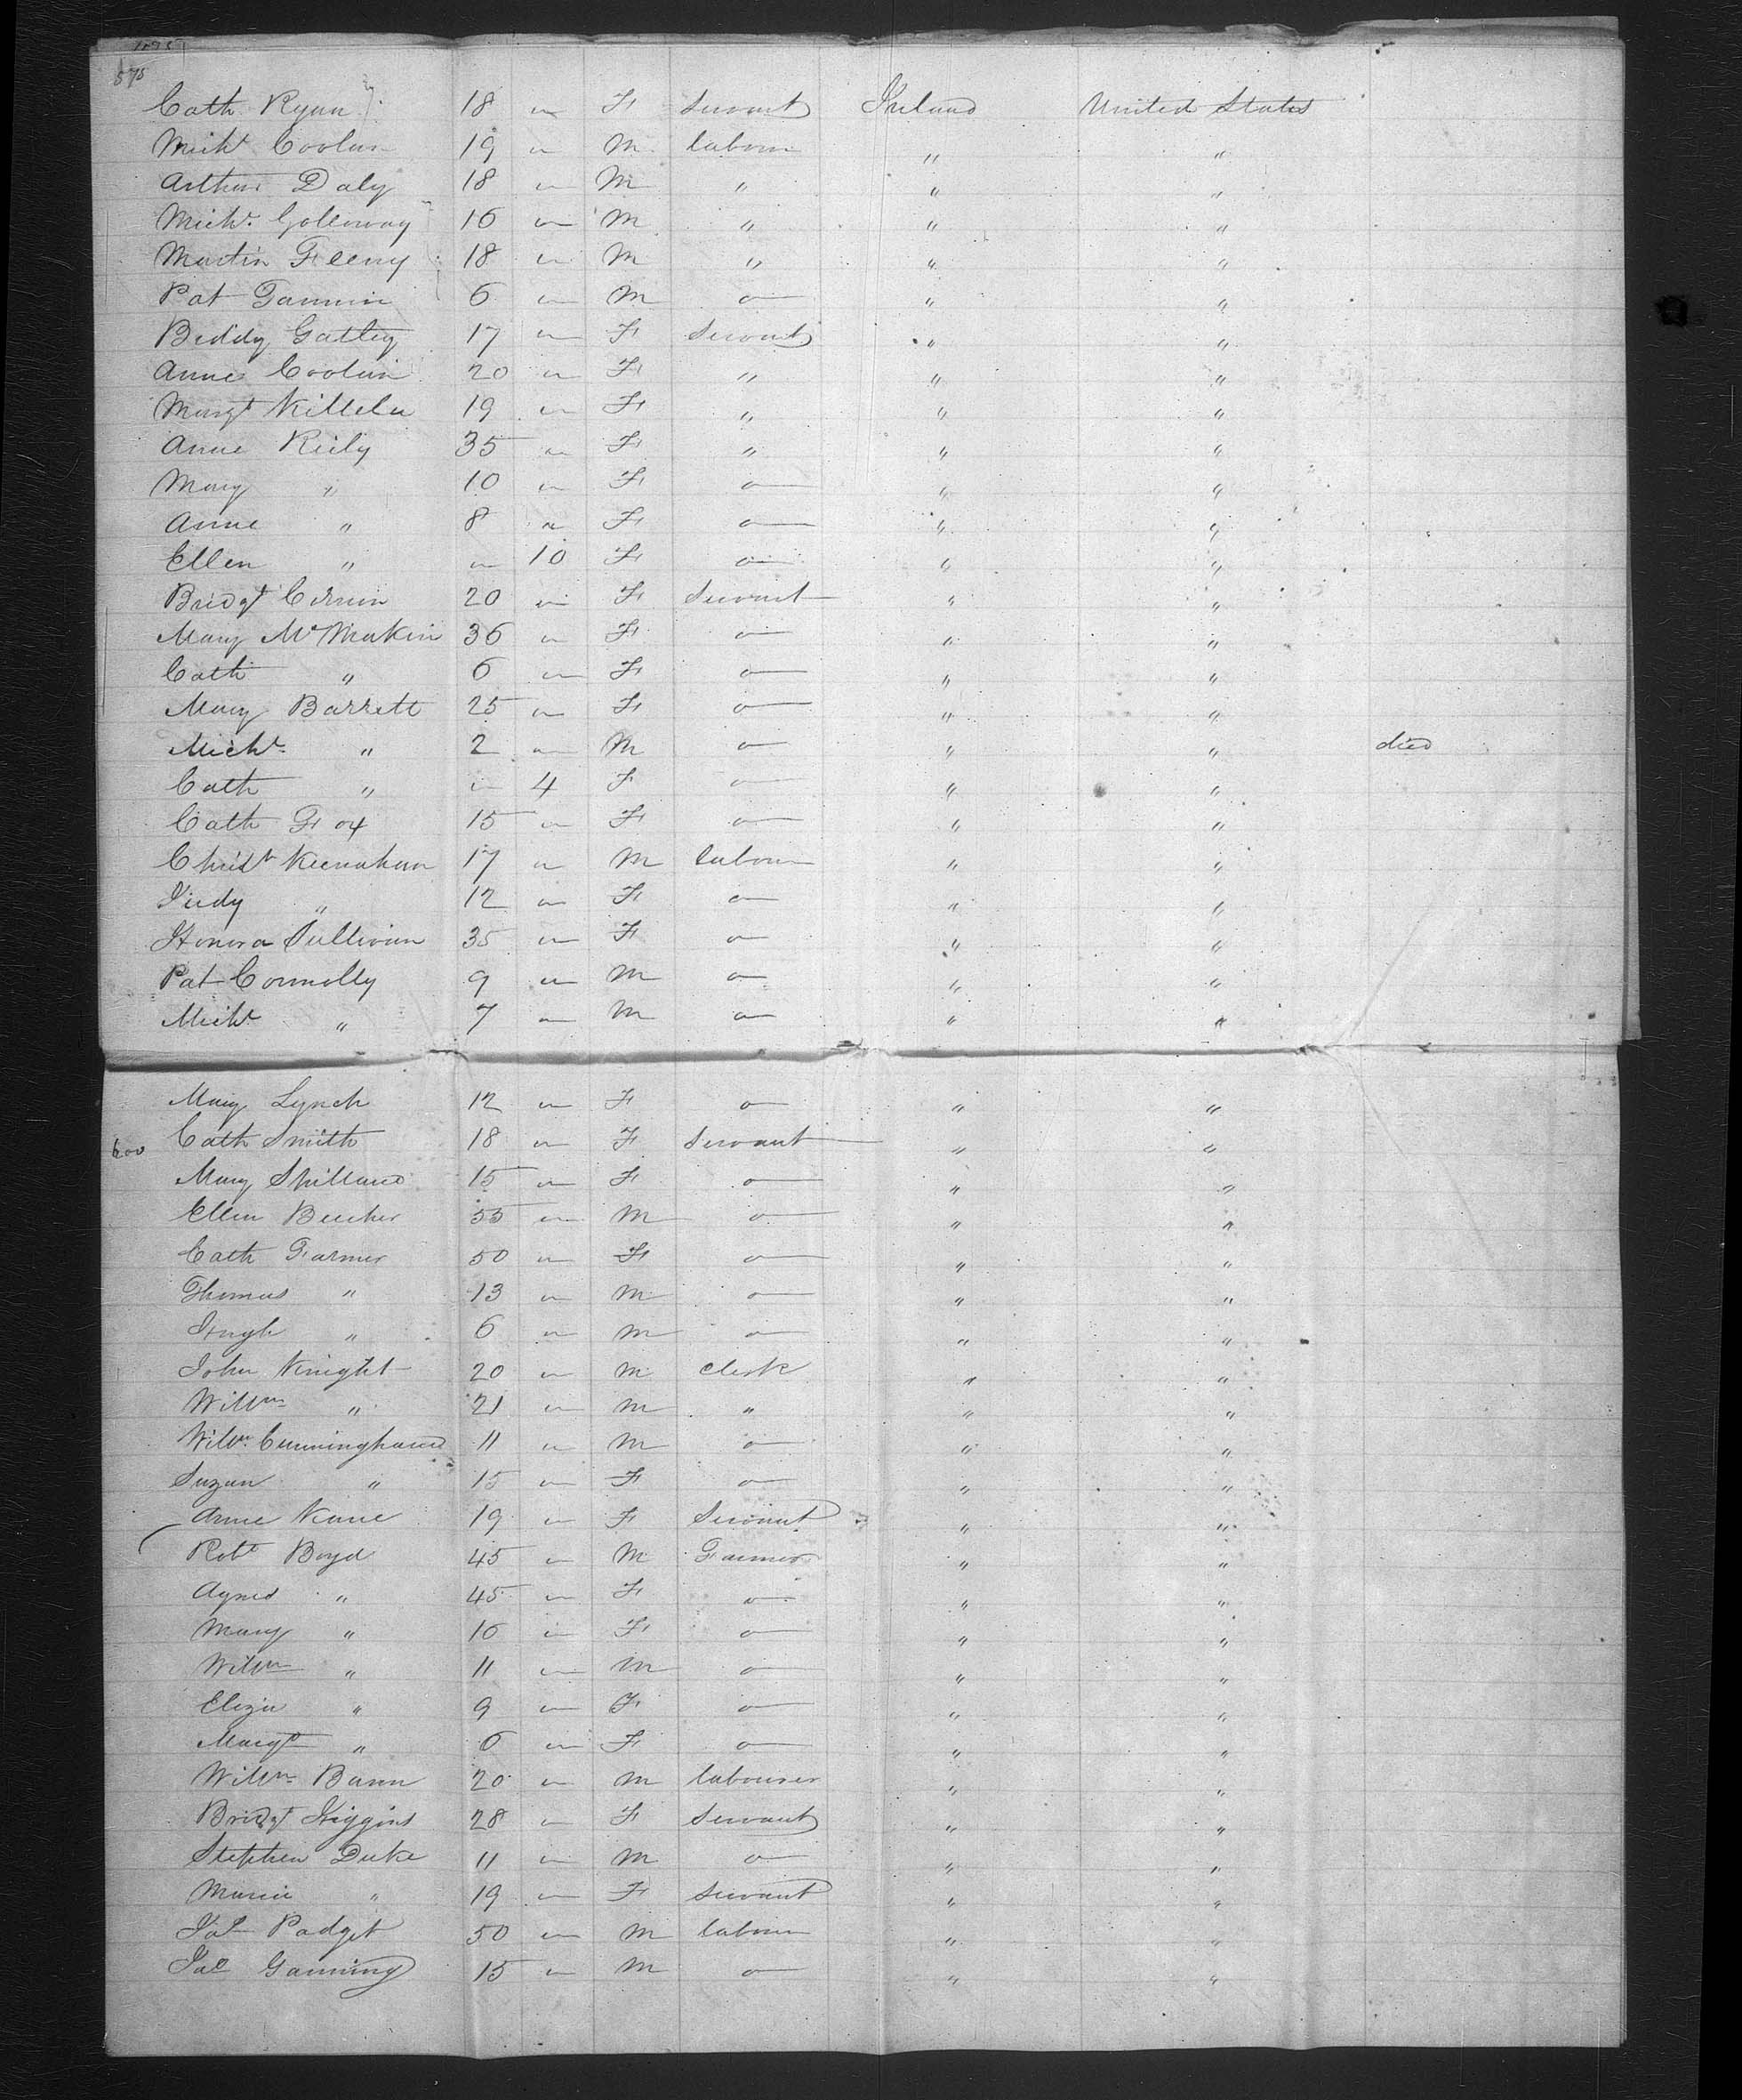 575
Cath Ryan 18 — F Servant Ireland United States
Michl Coolan 19 — M labour " "
Arthur Daly 18 — M " " "
Michl. Golloway 16 — M " " "
Martin Fleeny 18 — M " " "
Pat 6 — M — " "
Biddy Gatley 17 — F Servant " "
Anne Coolan 20 — F " " "
Margt Killela 19 — F " " "
Anne Reily 35 — F " " "
Mary " 10 — F — " "
Anne " 8 — F — " "
Ellen " — 10 F — " "
Bridgt 20 — F Servant " "
Mary McMakin 36 — F — " "
Cath " 6 — F — " "
Mary Barrett 25 — F — " "
Michl " 2 — M — " " died
Cath " — 4 F — " "
Cath Fox 15 — F — " "
Christr Keenahan 17 — M labour " "
Judy " 12 — F — " "
Honora Sullivan 35 — F — " "
Pat Connolly 9 — M — " "
Michl " 7 — M — " "
Mary Lynch 12 — F — " "
600 Cath Smith 18 — F Servant " "
Mary Spillane 15 — F — " "
Ellen Beecher 55 — M — " "
Cath Farmer 50 — F — " "
Thomas " 13 — M — " "
Hugh " 6 — M — " "
John Knight 20 — M Clerk " "
Willm " 21 — M " " "
Willm. Cunningham 11 — M — " "
Suzan " 15 — F — " "
Anne Kane 19 — F Servant " "
Robt Boyd 45 — M Farmer " "
Agnes " 45 — F — " "
Mary " 16 — F — " "
Willm " 11 — M — " "
Eliza " 9 — F — " "
Margt " 6 — F — " "
Willm Bann 20 — M labourer " "
Bridgt Higgins 28 — F Servant " "
Stephen Duke 11 — M — " "
Maria " 19 — F Servant " "
Jas Padget 50 — M labour " "
Jas Ganning 15 — M — " "